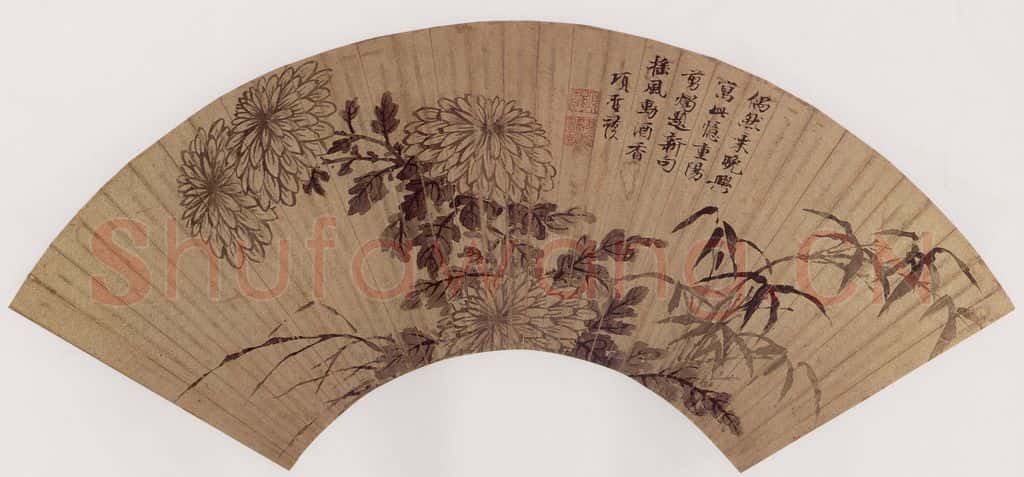 偶然来晚興
寫此應重陽
剪燭題新句
搖風動酒香
項聖謨
Shufawang.CN